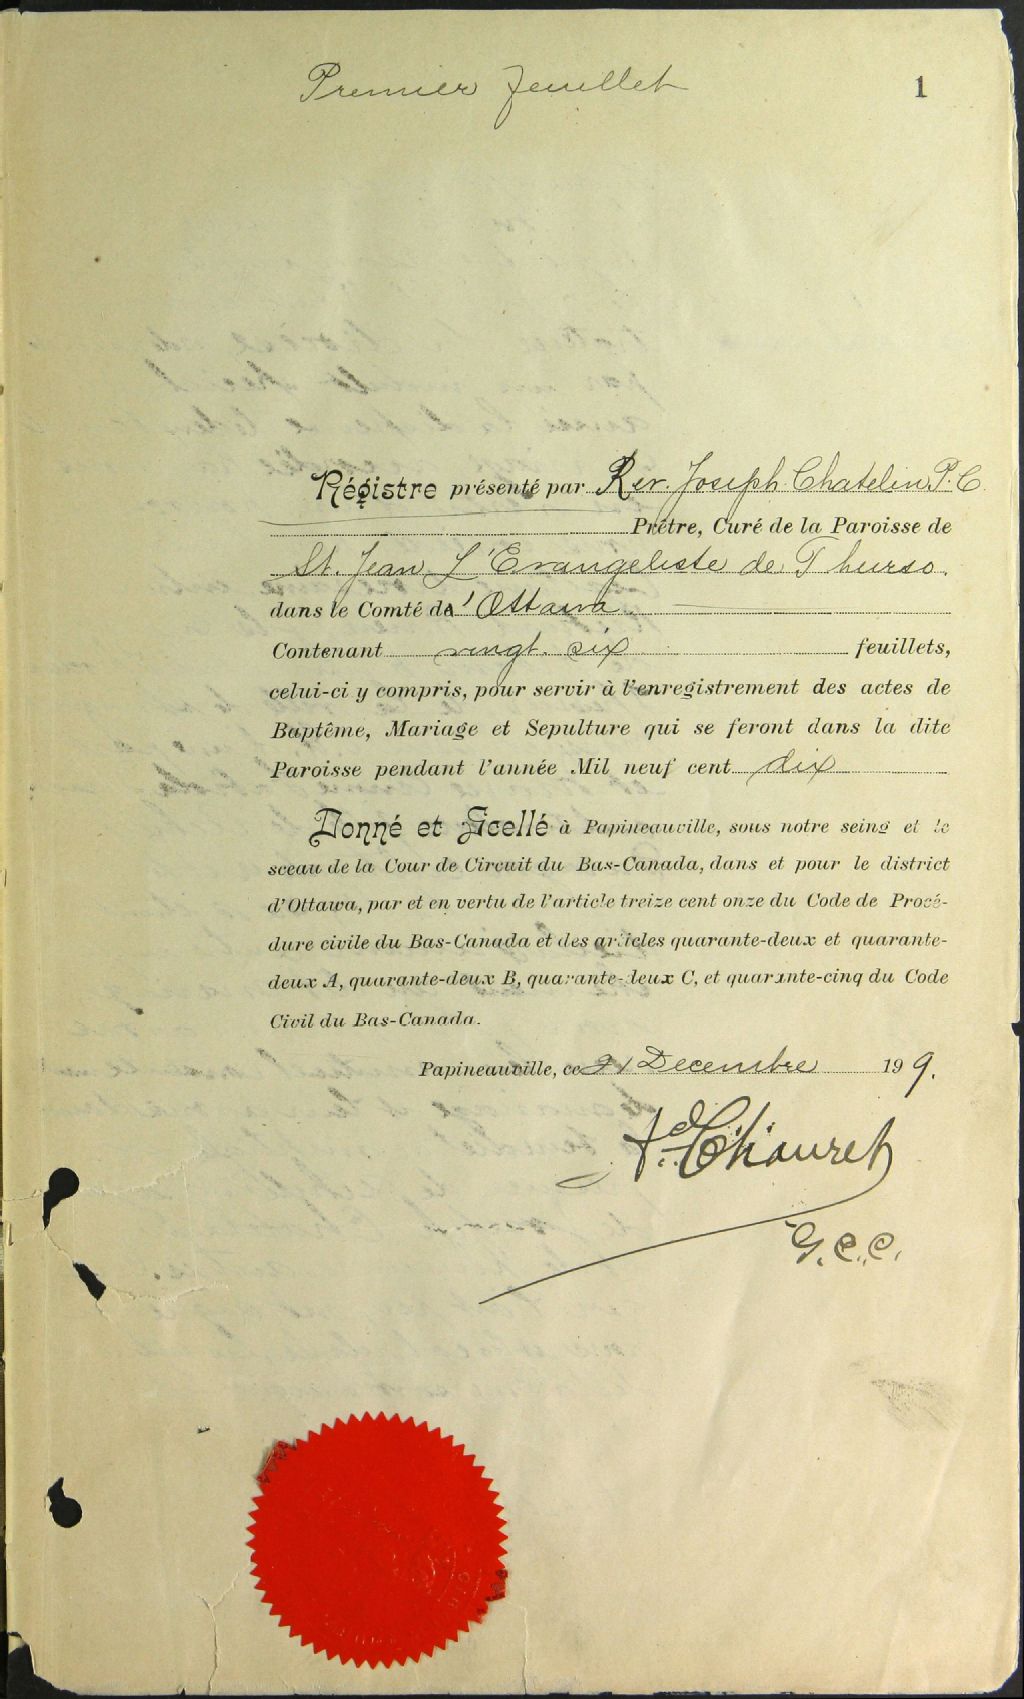 Premier feuillet
1
Régistre présenté par Rev. Joseph Chatelin P. C
Prêtre, Curé de la Paroisse de
St. Jean L'Evangeliste de Thurso.
dans le Comté de' Ottawa
Contenant vingt. six feuillets,
celui-ci y compris, pour servir à l'enregistrement des actes de
Baptême, Mariage et Sepulture qui se feront dans la dite
Paroisse pendant l'année Mil neuf cent dix
Donné et Scellé à Papineauville, sous notre seing et le
sceau de la Cour de Circuit du Bas-Canada, dans et pour le district
d'Ottawa, par et en vertu de l'article treize cent onze du Code de Procé-
dure civile du Bas-Canada et des articles quarante-deux et quarante-
deux A, quarante-deux B, quarante-deux C, et quarante-cinq du Code
Civil du Bas-Canada.
Papineauville, ce 21 Decembre 19 9.
Chauret
G. C. C.